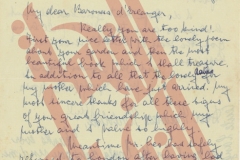 My dear Baroness d'Erlanger,
Really you are too kind!
First your nice letter with the lovely poem
about your garden and then the most
beautiful book which I shall treasure.
In addition to all that the lovely
my mother which has just arrived. My
most sincere thanks for all these signs
of your great friendship which my
mother and I
Meantime he has safely
to London after having had